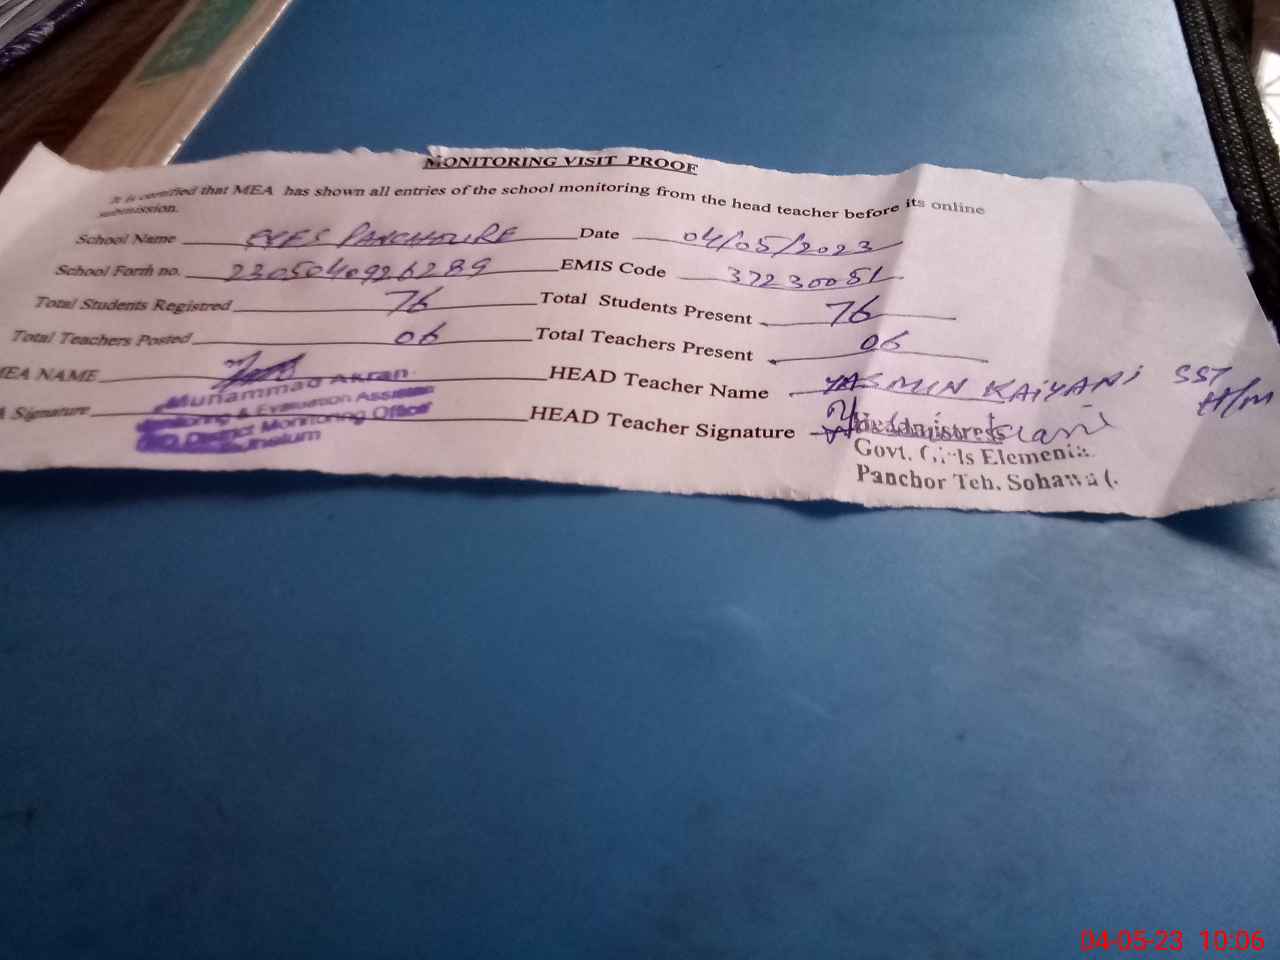 MONITORING VISIT PROOF
It is certified that MEA has shown all entries of the school monitoring from the head teacher before its online
submission.
School Name PANCHOURE Date 04/05/2023
School Form no. 2305040926289 EMIS Code 37230051
Total Students Registred 76 Total Students Present 76
Total Teachers Posted 06 Total Teachers Present 06
MEA NAME HEAD Teacher Name YASMIN KAIYANI SST
H/M
Signature HEAD Teacher Signature
Muhammad Akran
Monitoring & Evaluation Assistan
District Monitoring Office
Jhelum
Headmistress
Govt. Girls Elementa
Panchor Teh. Sohawa (.
04-05-23 10:06